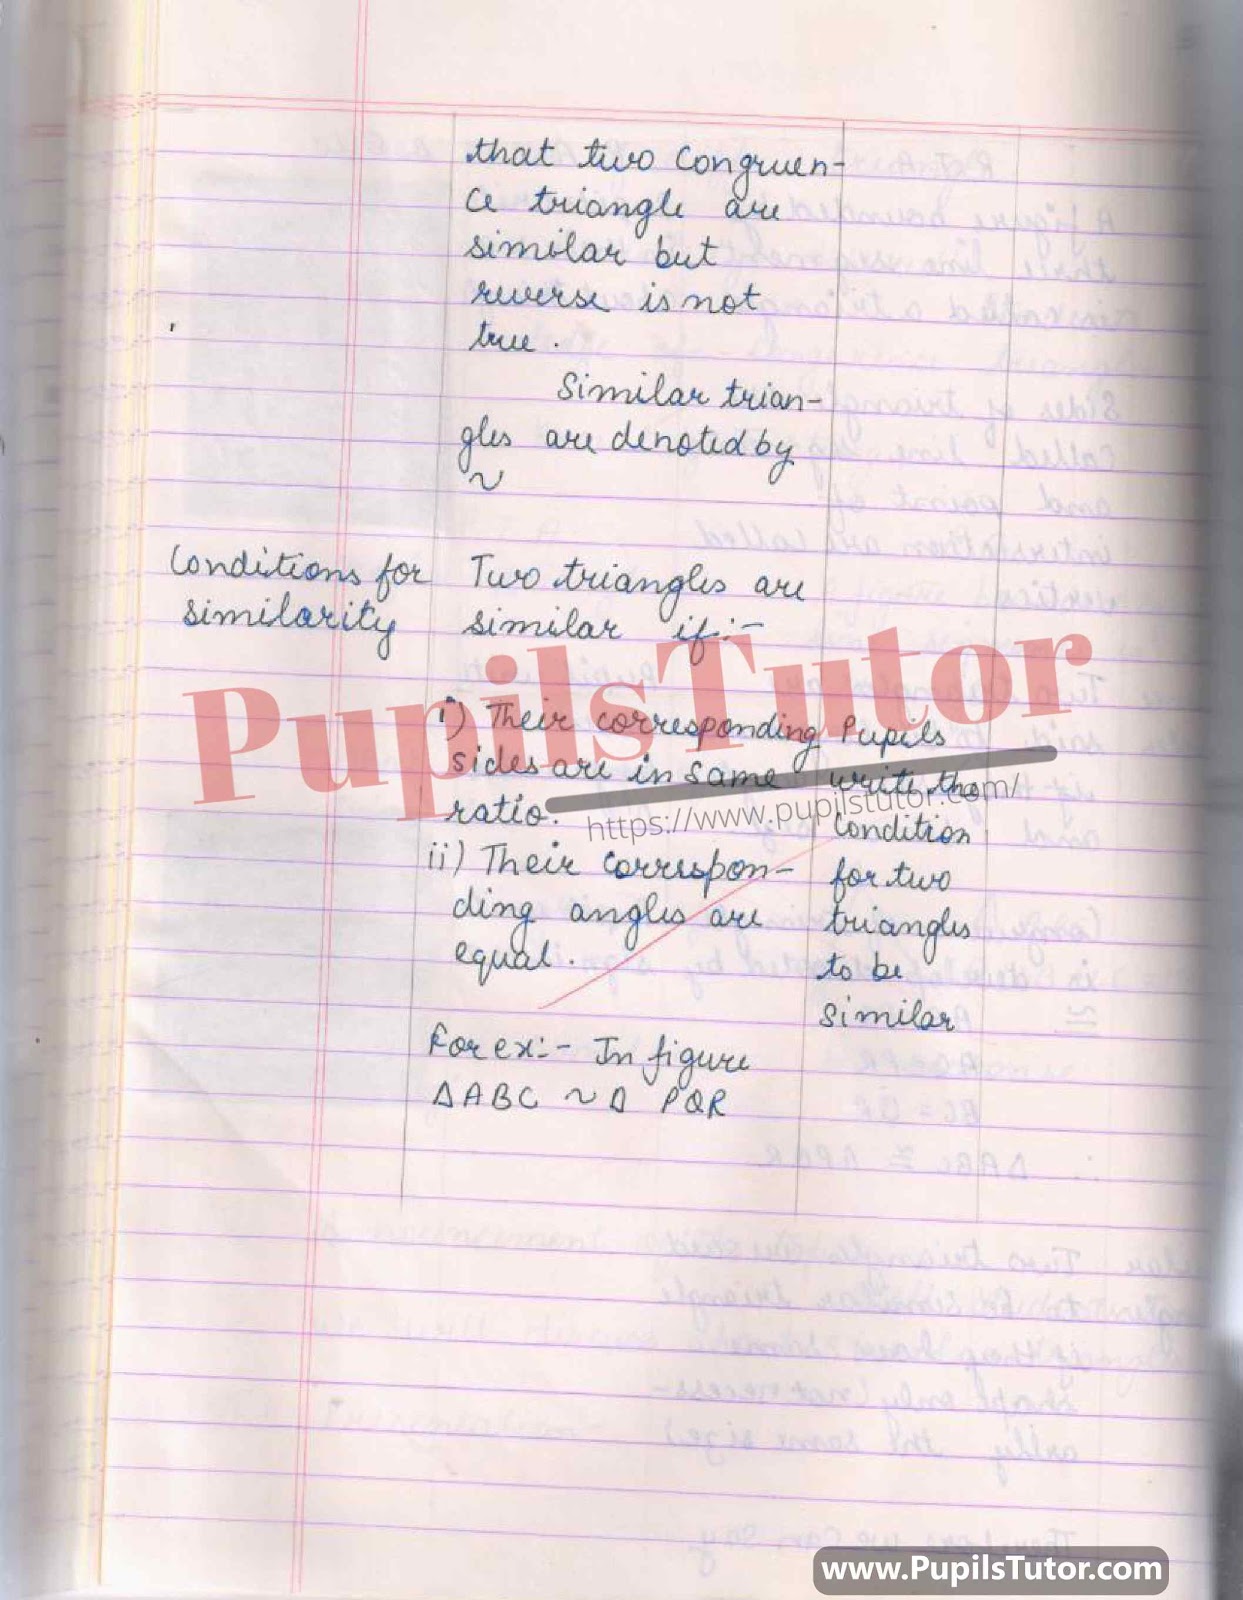 that two congruen-
ce triangle are
similar but
reverse is not
true.
Similar trian-
gles are denoted by
~
Conditions for
similarity
Two triangles are
similar if:-
i) Their corresponding
sides are in same
ratio.
ii) Their correspon-
ding angles are
equal.
For ex:- In figure
Δ ABC ~ Δ PQR
Pupils
write the
condition
for two
triangles
to be
similar
PupilsTutor
https://www.pupilstutor.com/
www.PupilsTutor.com